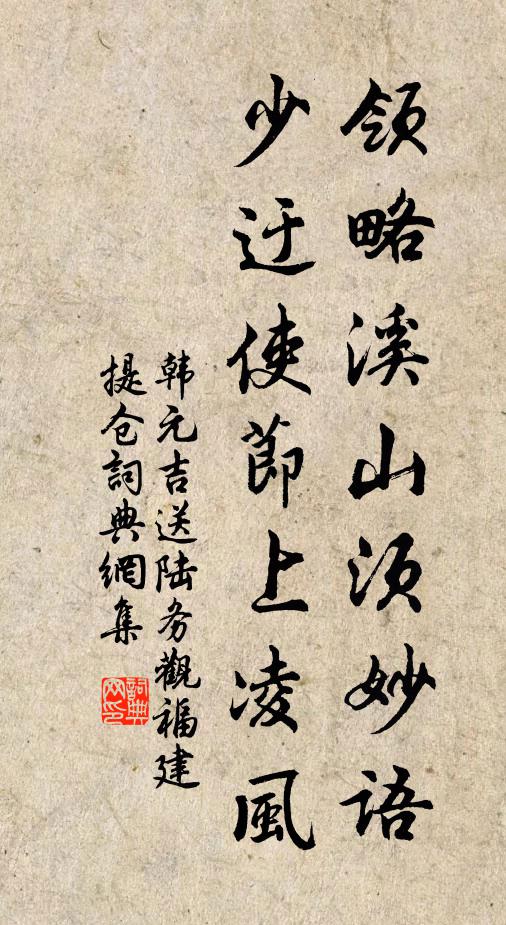 领略溪山须妙语
少迂使節上凌風
韩元吉送陆务觀福建
提仓詞典網集
詞典网印